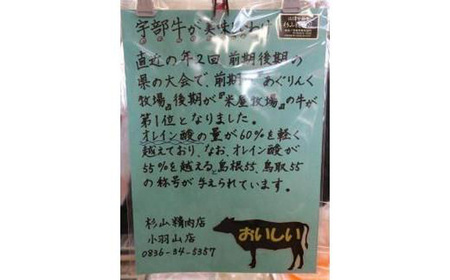 宇部牛が美味しいわけ
直近の年2回、前期後期の
県の大会で、前期が『あぐりんく
牧場』後期が『米屋牧場』の牛が
第1位となりました。
オレイン酸の量が60%を軽く
越えており、なお、オレイン酸が
55%を越える、島根55、鳥取55
の称号が与えられています。
杉山精肉店
小羽山店
0836-34-5357
おいしい